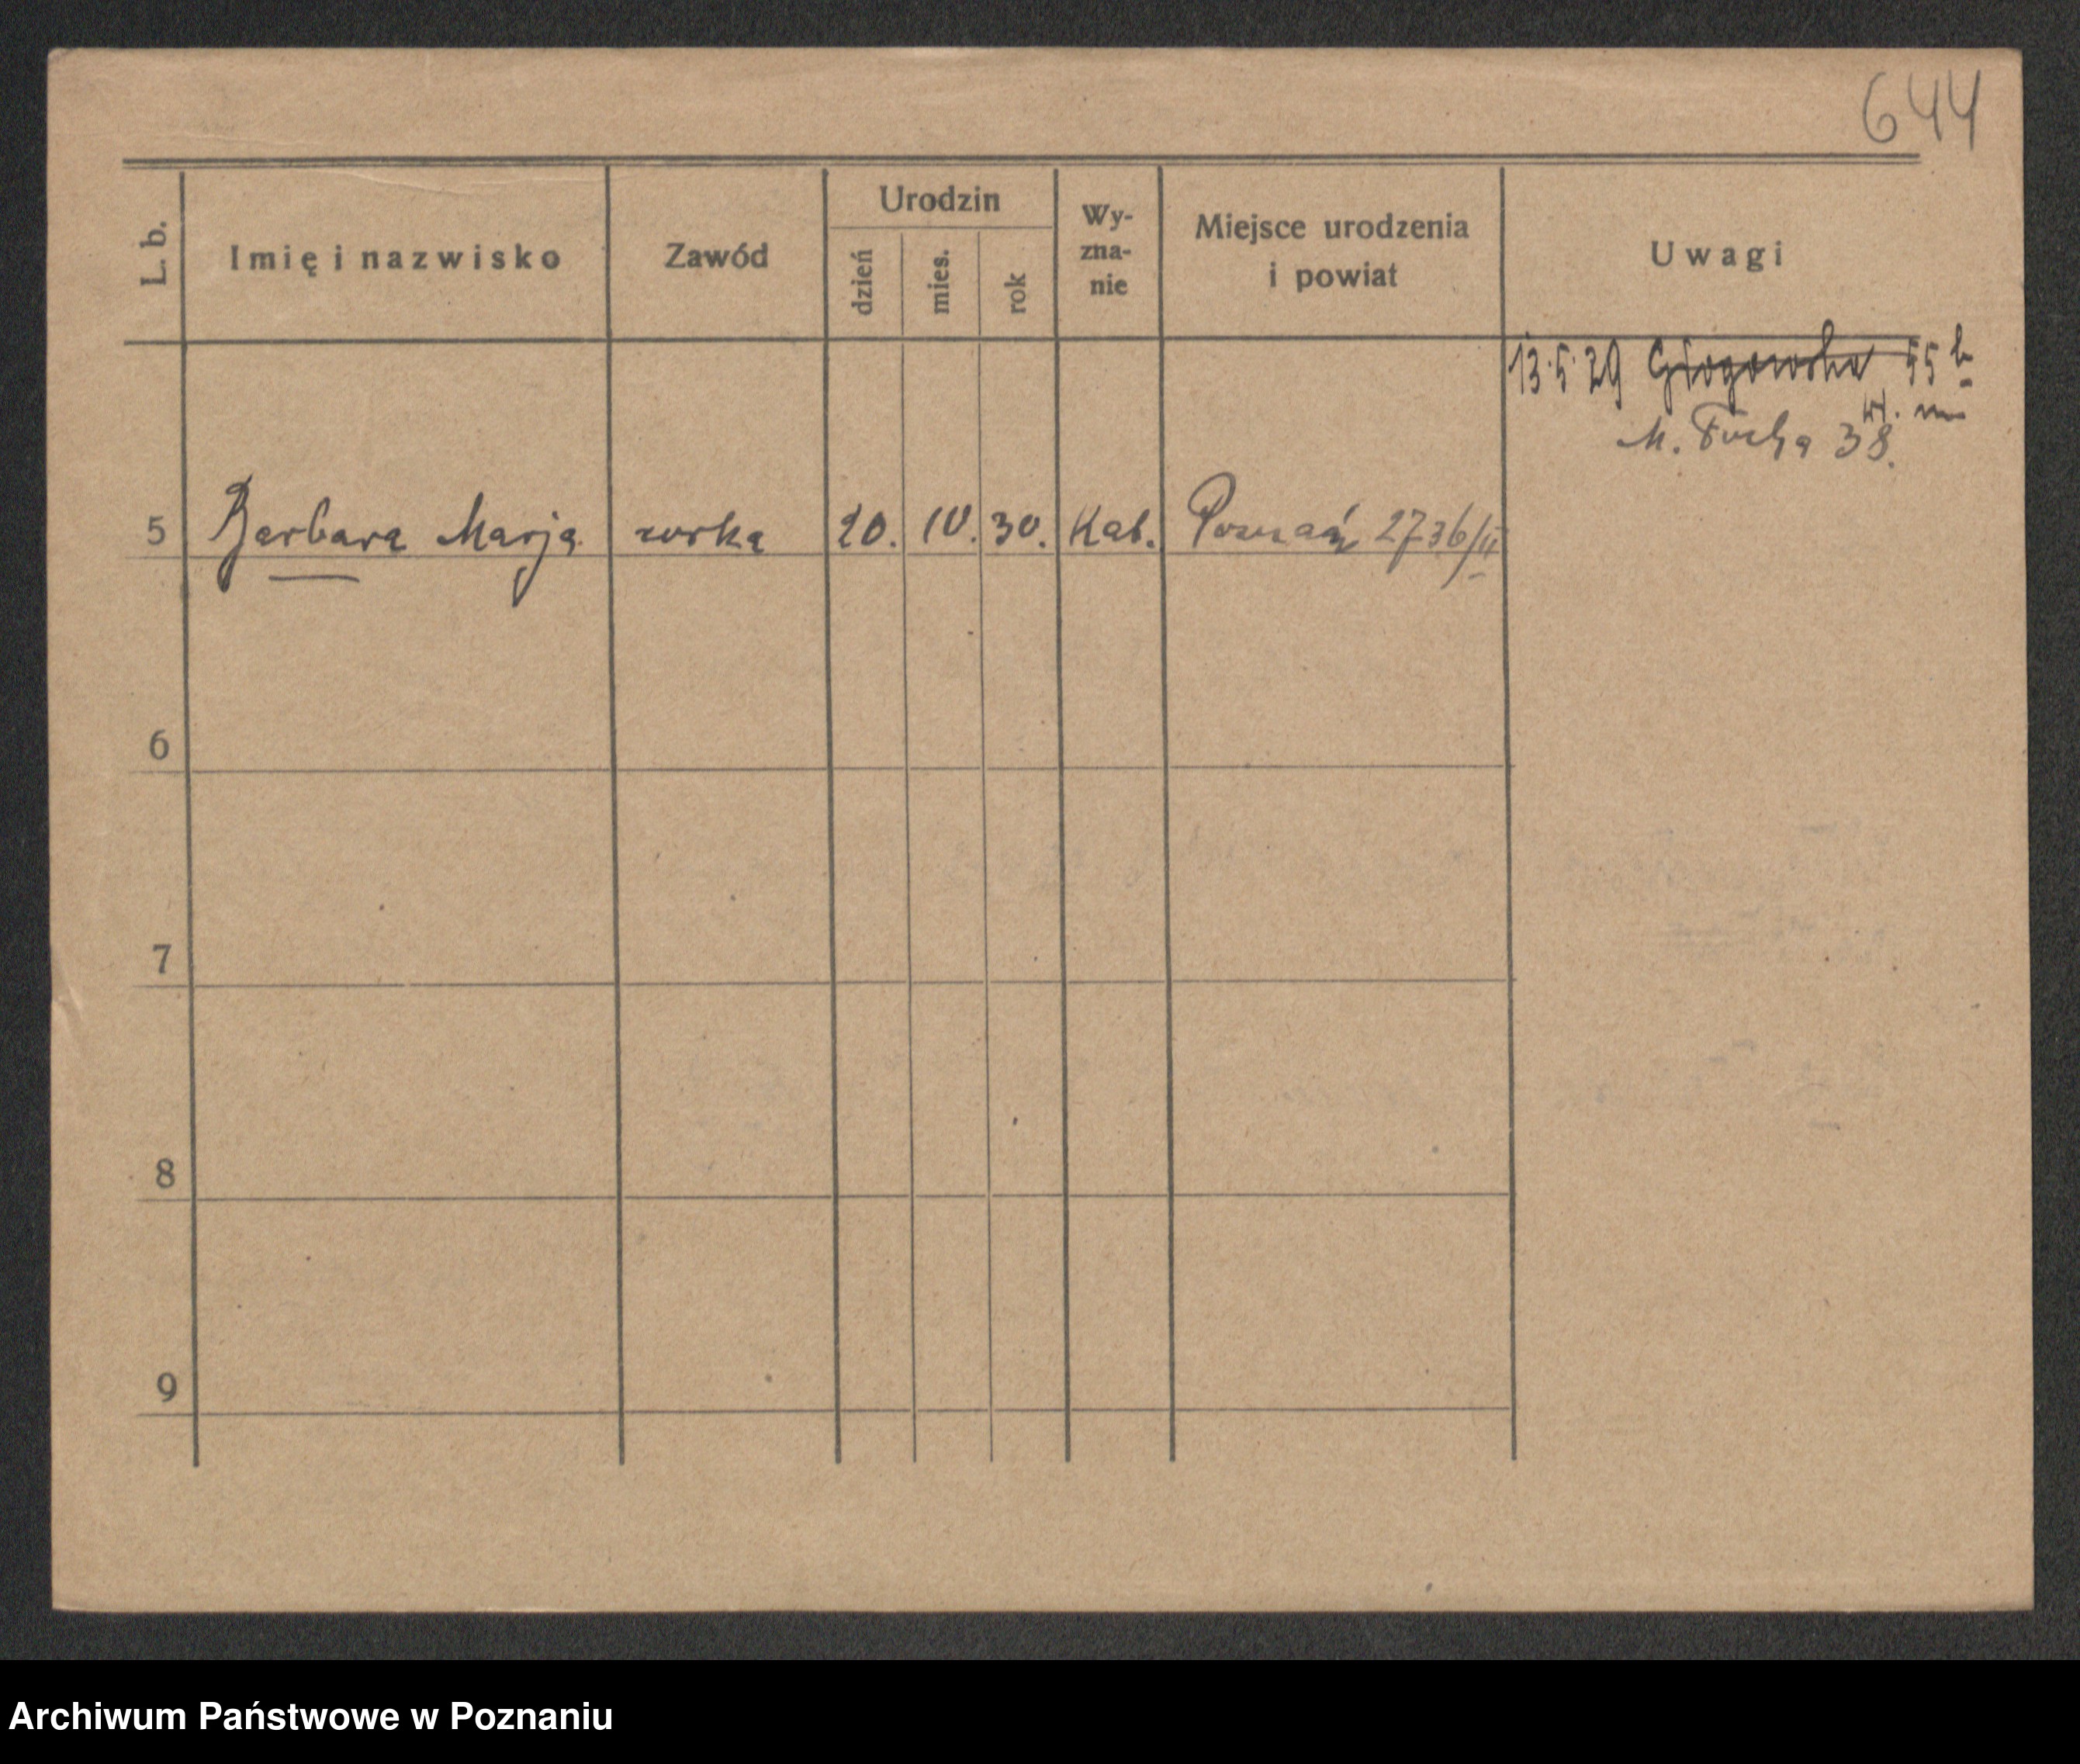 644
L. b.
Imię i nazwisko
Zawód
Urodzin
dzień
mies.
rok
Wy-
zna-
nie
Miejsce urodzenia
i powiat
Uwagi
13.5.29 Głogowska 55 b
M. Focha 38.
5 Barbara Marja córka 20. IV. 30. Kat. Poznań 2736/II
6
7
8
9
Archiwum Państwowe w Poznaniu